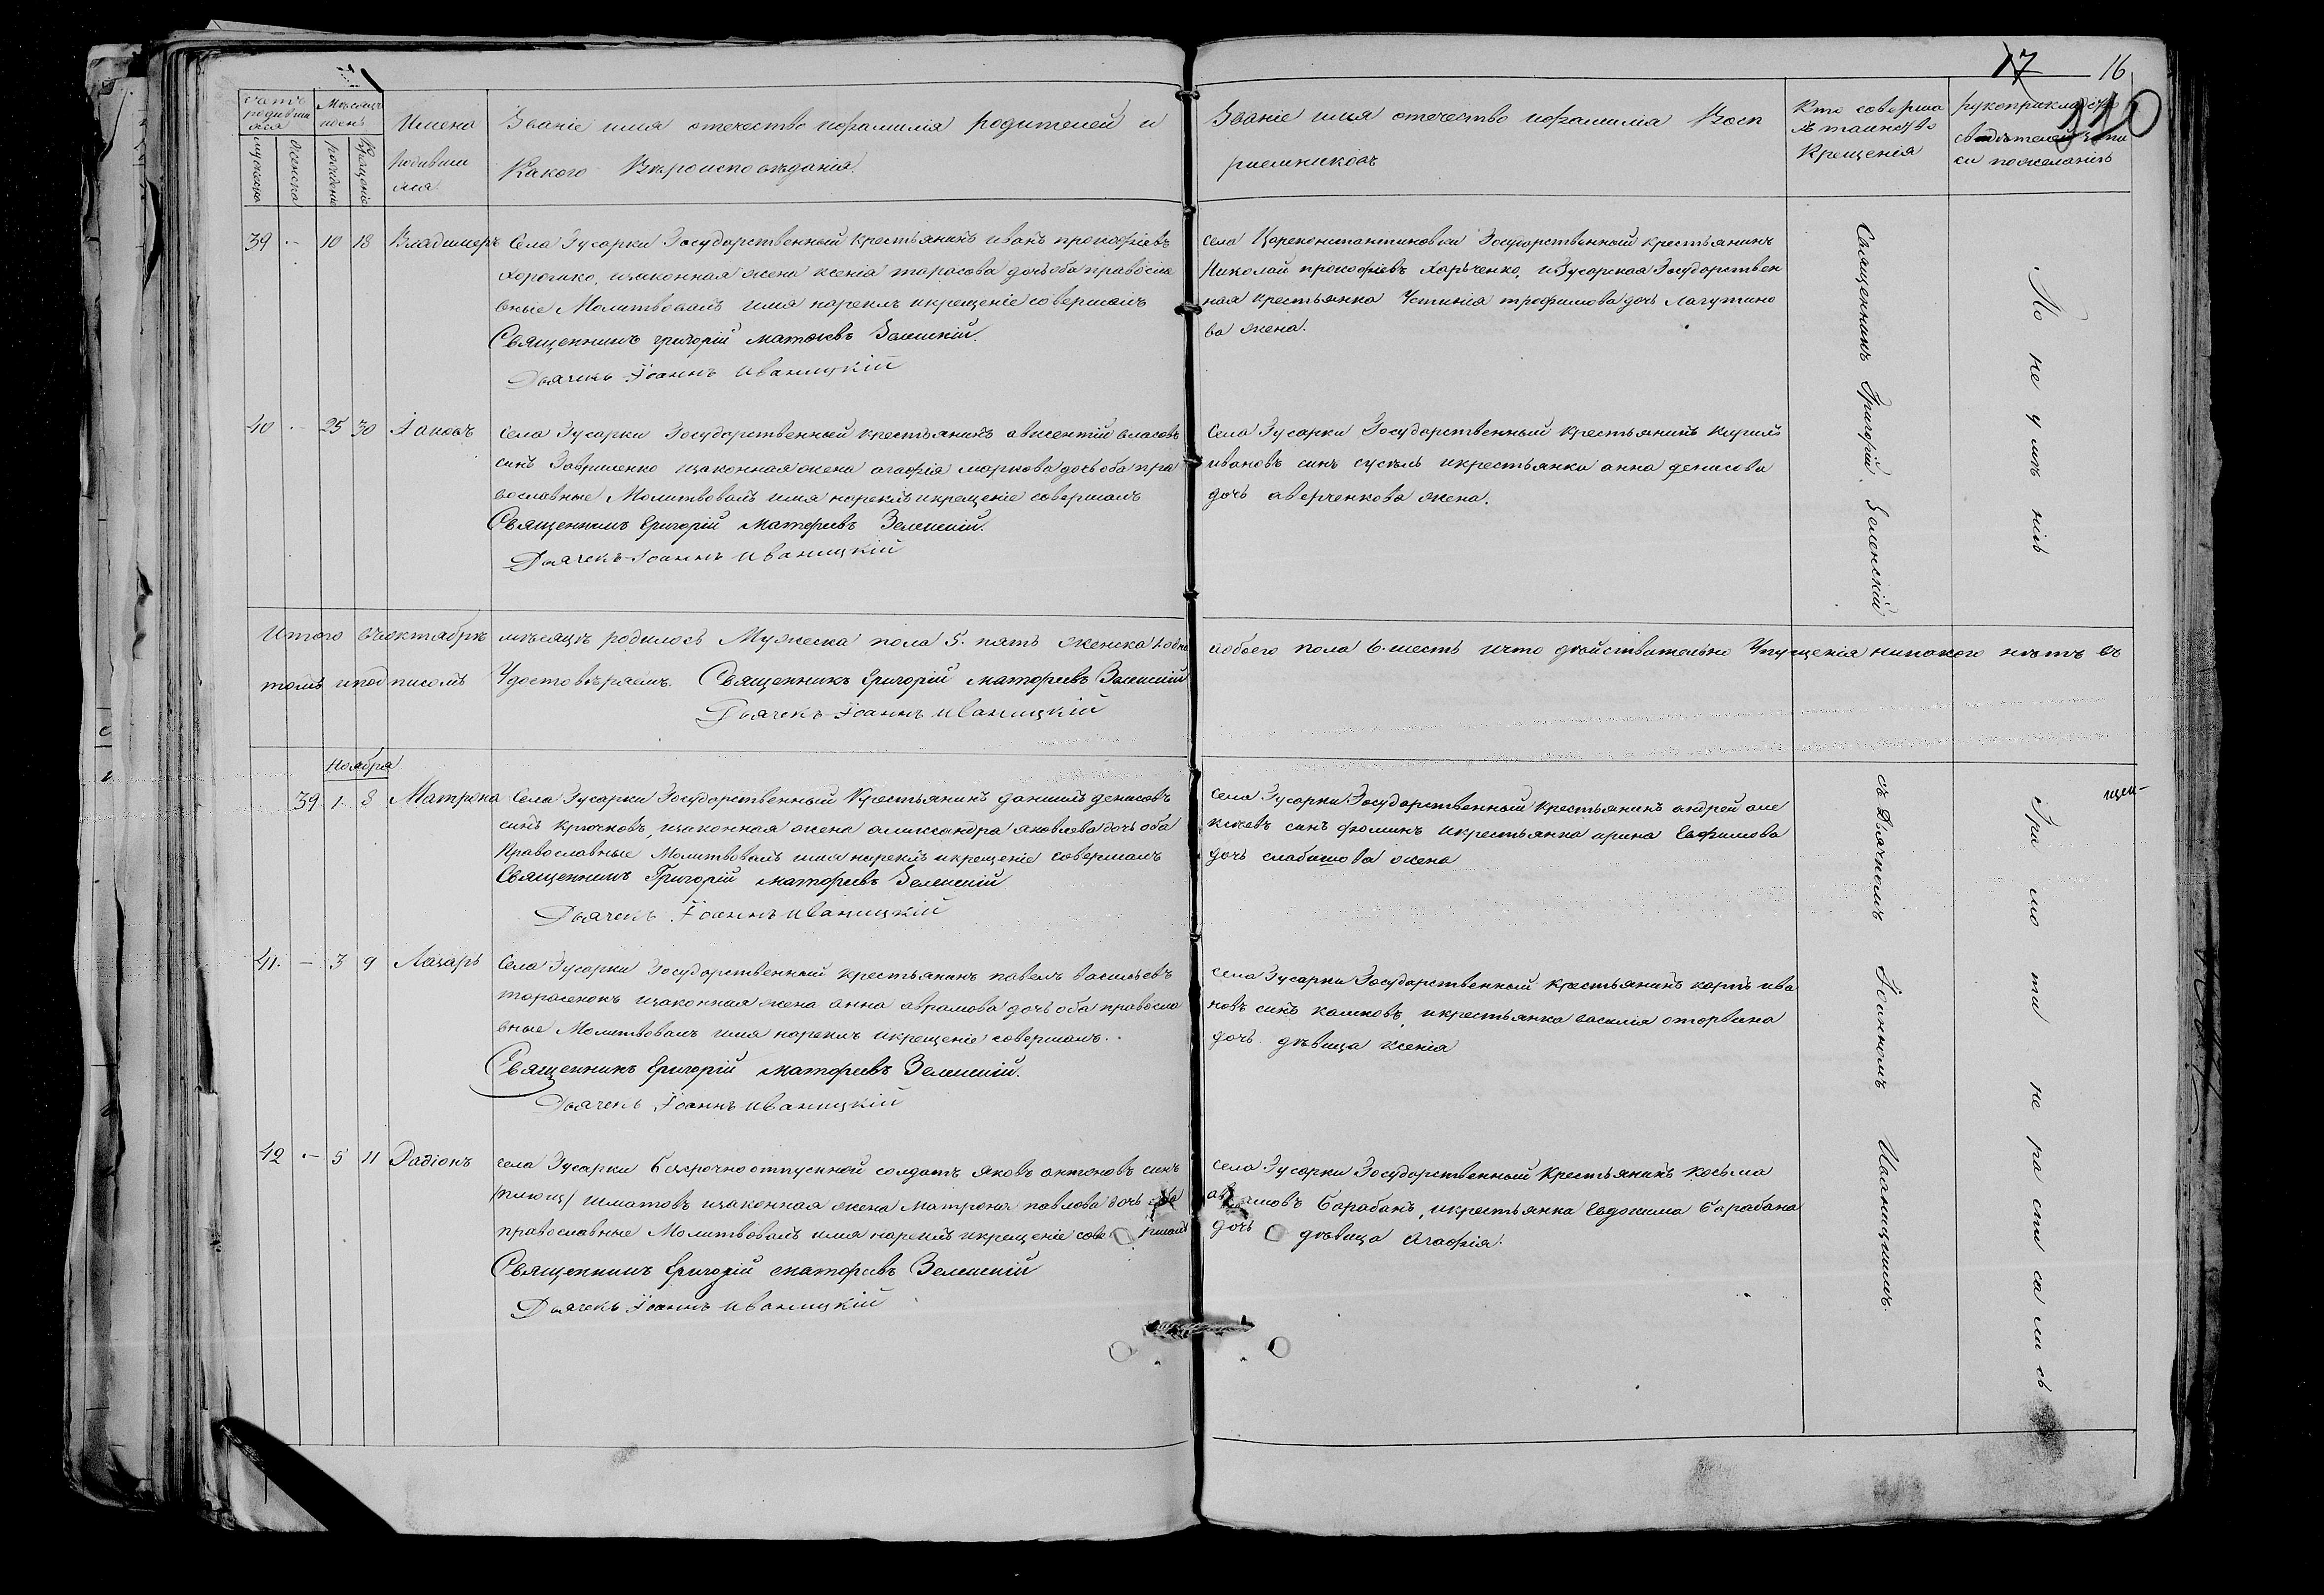 17 16
110
счотъ родивши мся
Мѣсяцъ иденъ
Имена родивши мся
Званіе имя отечество ифамилія родителей и
Какого Вѣроисповѣданія.
Званіе имя отечество ифамилія Восп
риемниковъ
Кто соверша
лъ таинство
Крещенія
рукоприкладство
свидѣтелей запи
си пожеланію
мужеска
женска
рожденія
Крещенія
39 - 10 18 Владимеръ Села Гусарки Государственный крестьянинъ иванъ прокофіевъ
изаконная жена ксенія тарасова дочь оба правосла
вные Молитвовалъ имя нарекъ икрещеніе совершалъ
Священникъ григорій матфеевъ Зеленскій.
Дьячекъ Іоаннъ иваницкій
села Цареконстантиновки Государственный крестьянинъ
Николай прокофіевъ Харьченко, иГусарская Государствен
ная крестьянка Устинія трофимова дочь Лагутино
ва жена.
40 - 25 30 Іаковъ Села Гусарки Государственный крестьянинъ авксентій власовъ
синъ Гавриленко изаконная жена агафія маркова дочь оба пра
вославные Молитвовалъ имя нарекъ икрещеніе совершалъ
Священникъ Григорій матфеевъ Зеленскій.
Дьячекъ Іоаннъ иваницкій
Села Гусарки Государственный крестьянинъ кирилъ
ивановъ синъ сукъль икрестьянка анна денисова
дочь аверченкова жена.
Священникъ Григорій Зеленскій
По не умѣ нію
Итого въоктябрѣ мѣсяцѣ родилось Мужеска пола 5. пять женска 1. одна
иобоего пола 6. шесть ичто дѣйствительно Упущенія никакого нѣтъ въ
томъ иподписомъ Удостовѣряемъ. Священникъ Григорій матфеевъ Зеленскій
Дьячекъ Іоаннъ иваницкій
Ноября
39 1. 8 Матрона Села Гусарки Государственный Крестьянинъ данилъ денисовъ
синъ крючковъ, изаконная жена александра яковлева дочь оба
Православные Молитвовалъ имя нарекъ икрещеніе совершалъ
Священникъ Григорій матфеевъ Зеленскій
Дьячекъ Іоаннъ иваницкій
села Гусарки Государственный Крестьянинъ андрей але
ксѣевъ синъ фоминъ икрестьянка ирина Евфимова
дочь слабишова жена
41. - 3 9 Лазарь Села Гусарки Государственный крестьянинъ павелъ васильевъ
тарасенокъ изаконная жена анна аврамова дочь оба правосла
вные Молитвовалъ имя нарекъ икрещеніе совершалъ.
Священникъ Григорій матфеевъ Зеленскій.
Дьячекъ Іоаннъ иваницкій
села Гусарки Государственный крестьянинъ карпъ ива
новъ синъ калновъ, икрестьянка василія
дочь дѣвица ксенія
42 - 5 11 Радіонъ села Гусарки безсрочноотпускной солдатъ яковъ антоновъ синъ
шматовъ изаконная жена Матрона павлова дочь оба
православные Молитвовалъ имя нарекъ икрещеніе совершалъ
Священникъ Григорій матфеевъ Зеленскій
Дьячекъ Іоаннъ иваницкій
села Гусарки Государственный Крестьянинъ косьма
Барабанъ, икрестьянка Евдокима Барабана
дочь дѣвица Агафія.
съ Дьячкомъ Іоанномъ Иваницкимъ.
Гра мо ти не ра спи са ли сь